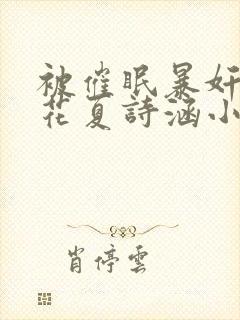 被催眠暴奸
花夏詩涵小
肖停雲